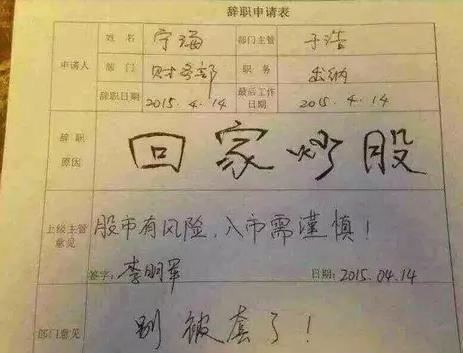 辞职申请表
申请人 姓名 宁海 部门主管 于浩
部门 财务部 职务 出纳
辞职日期 2015.4.14 最后工作日期 2015.4.14
辞职原因 回家炒股
上级主管意见 股市有风险，入市需谨慎！
签字: 李明军 日期: 2015.04.14
部门意见 别被套了！